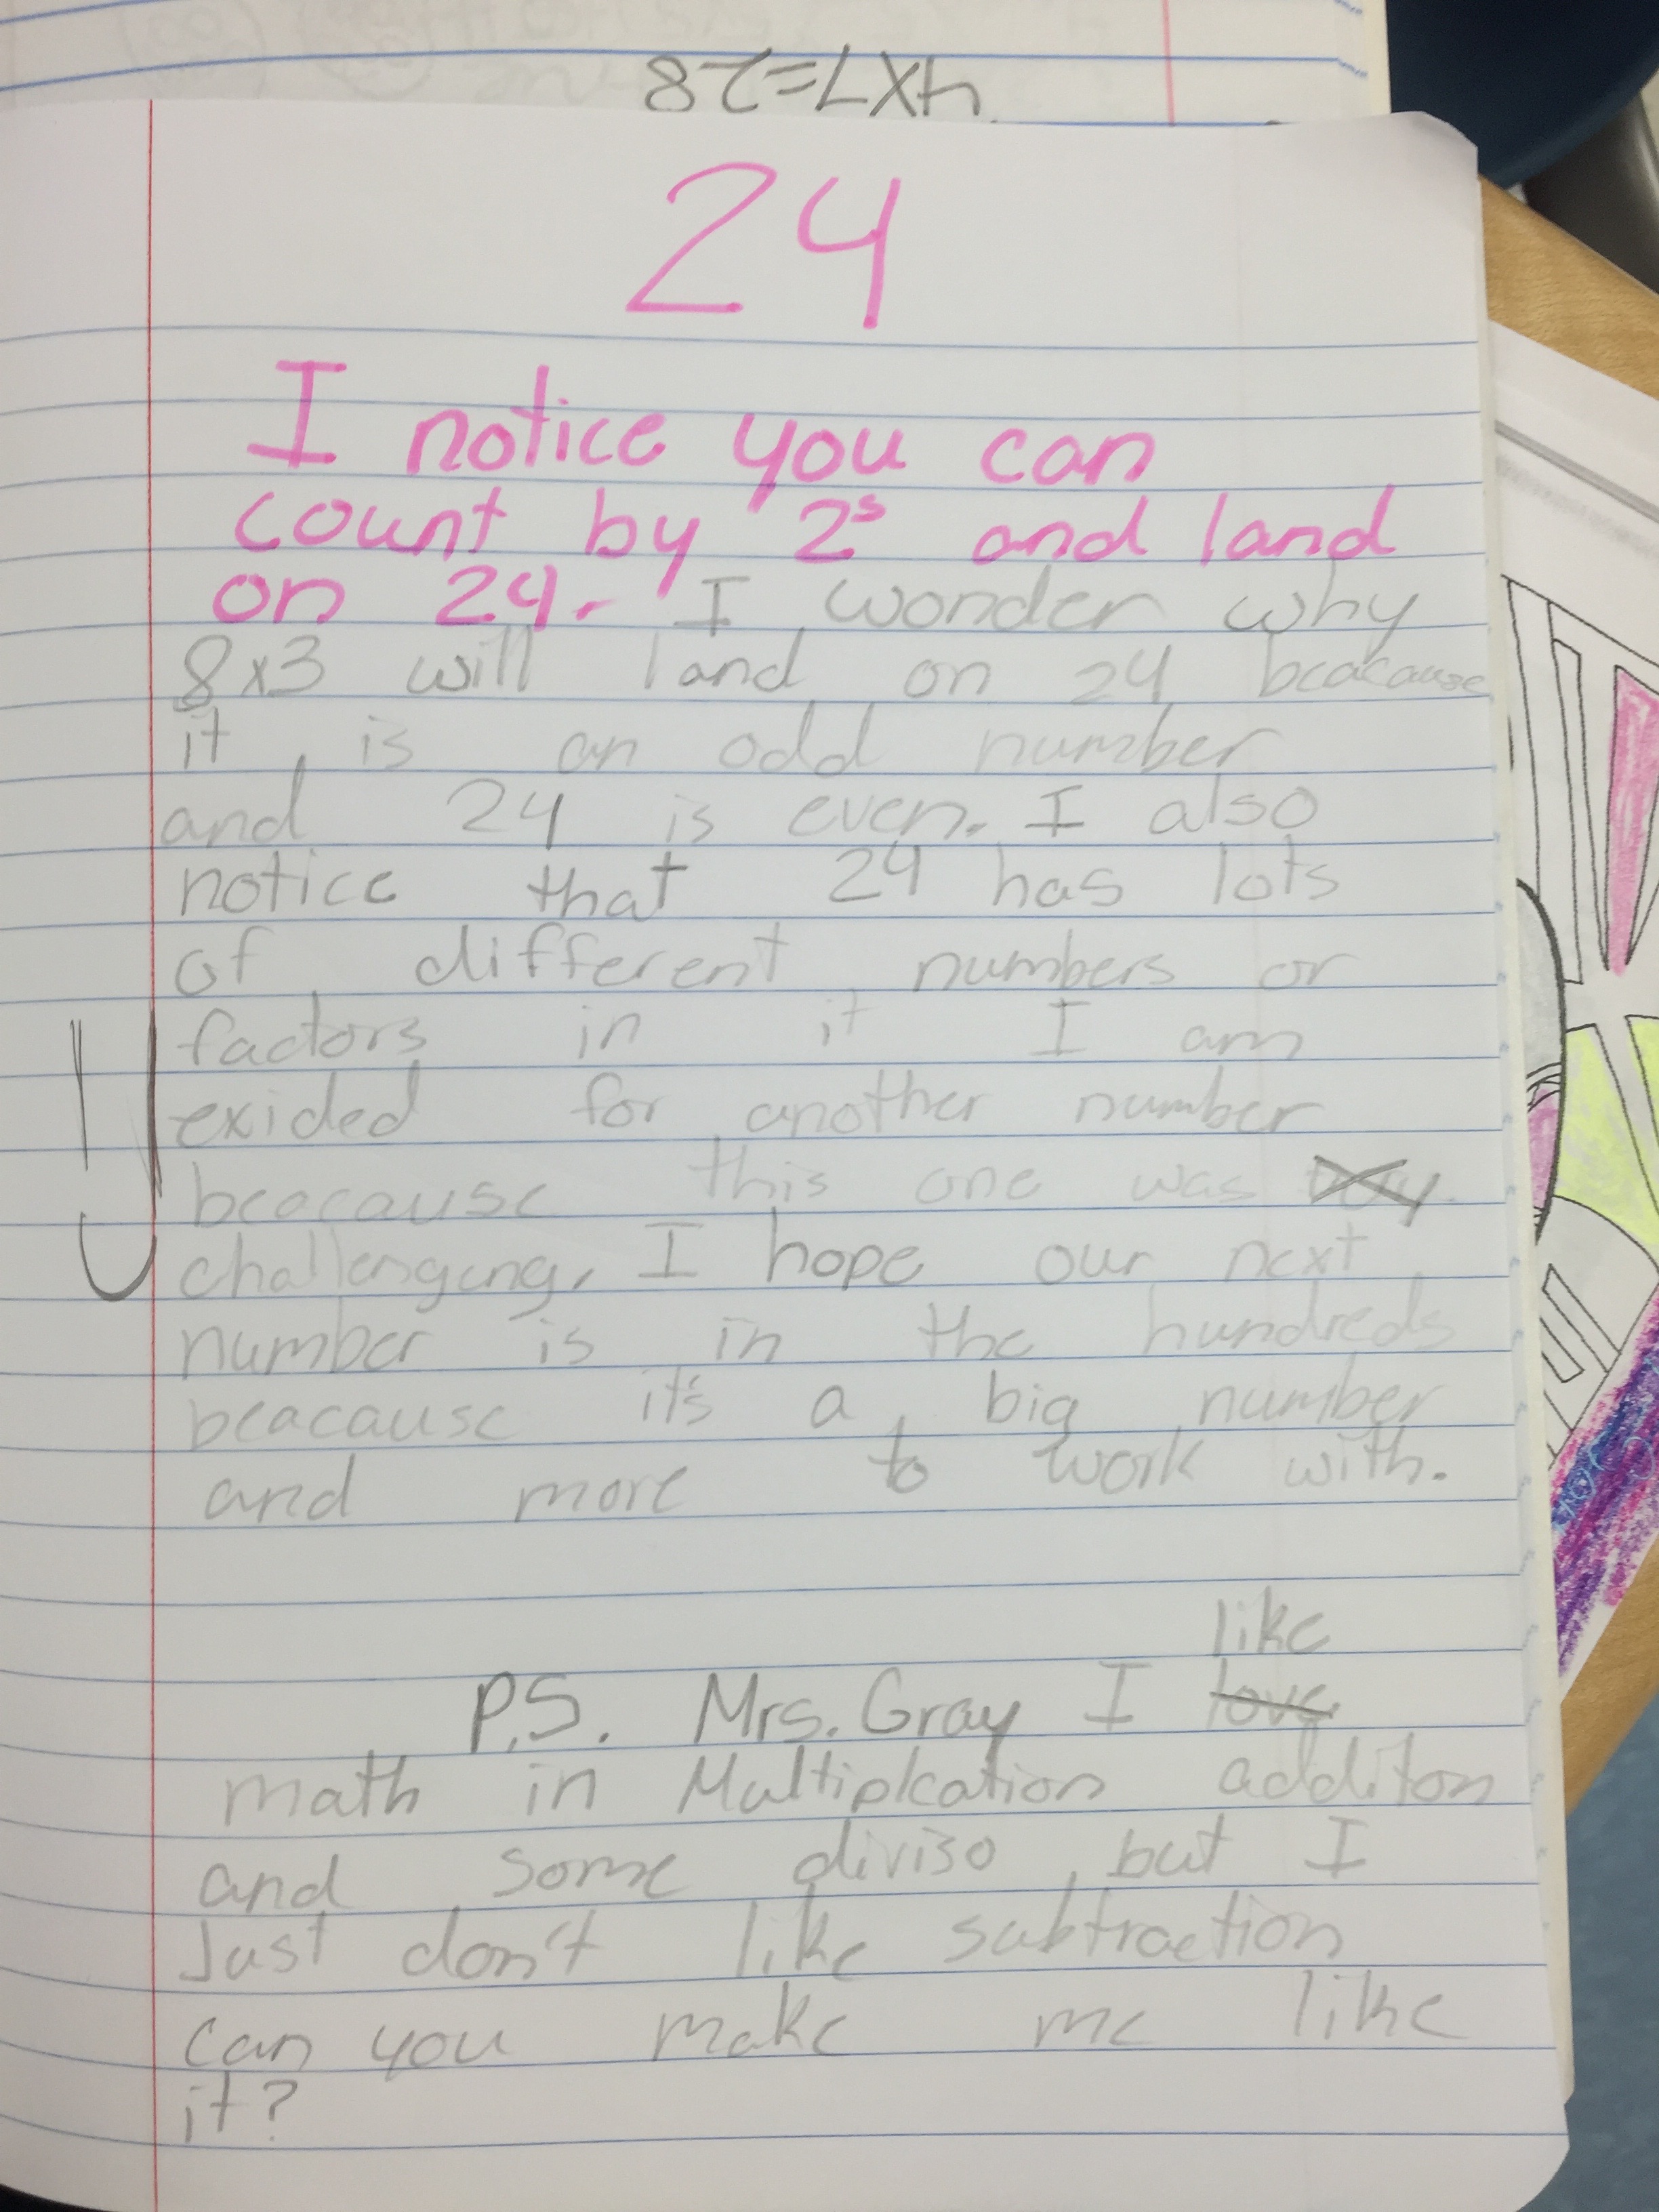 4x7=28
24
I notice you can
count by 2s and land
on 24. I wonder why
8x3 will land on 24 beacause
it is an odd number
and 24 is even. I also
notice that 24 has lots
of different numbers or
factors in it I am
exided for another number
beacause this one was
challenging. I hope our next
number is in the hundreds
beacause it's a big number
and more to work with.
like
P.S. Mrs. Gray I love
math in Multiplcation additon
and some diviso, but I
Just don't like subtraction
can you make me like
it?